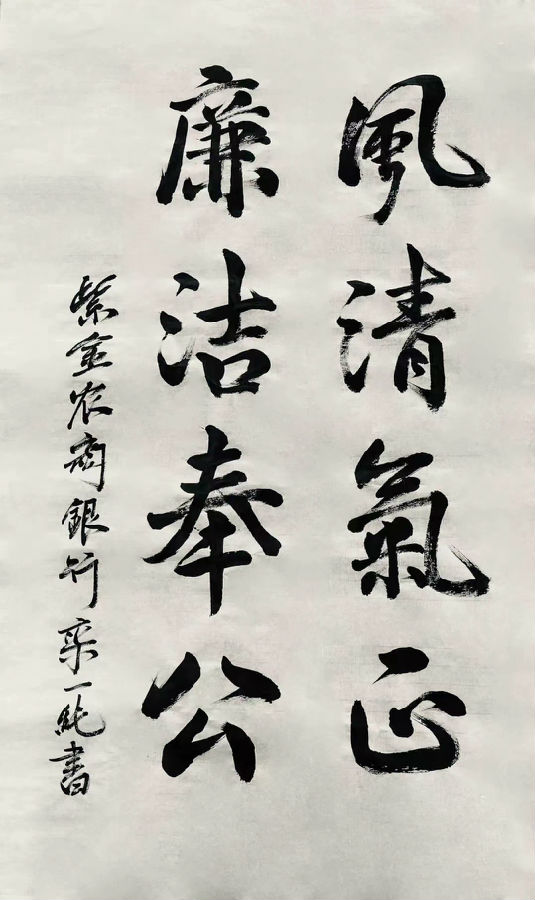 風清氣正
廉洁奉公
紫金农商銀行栾一純書